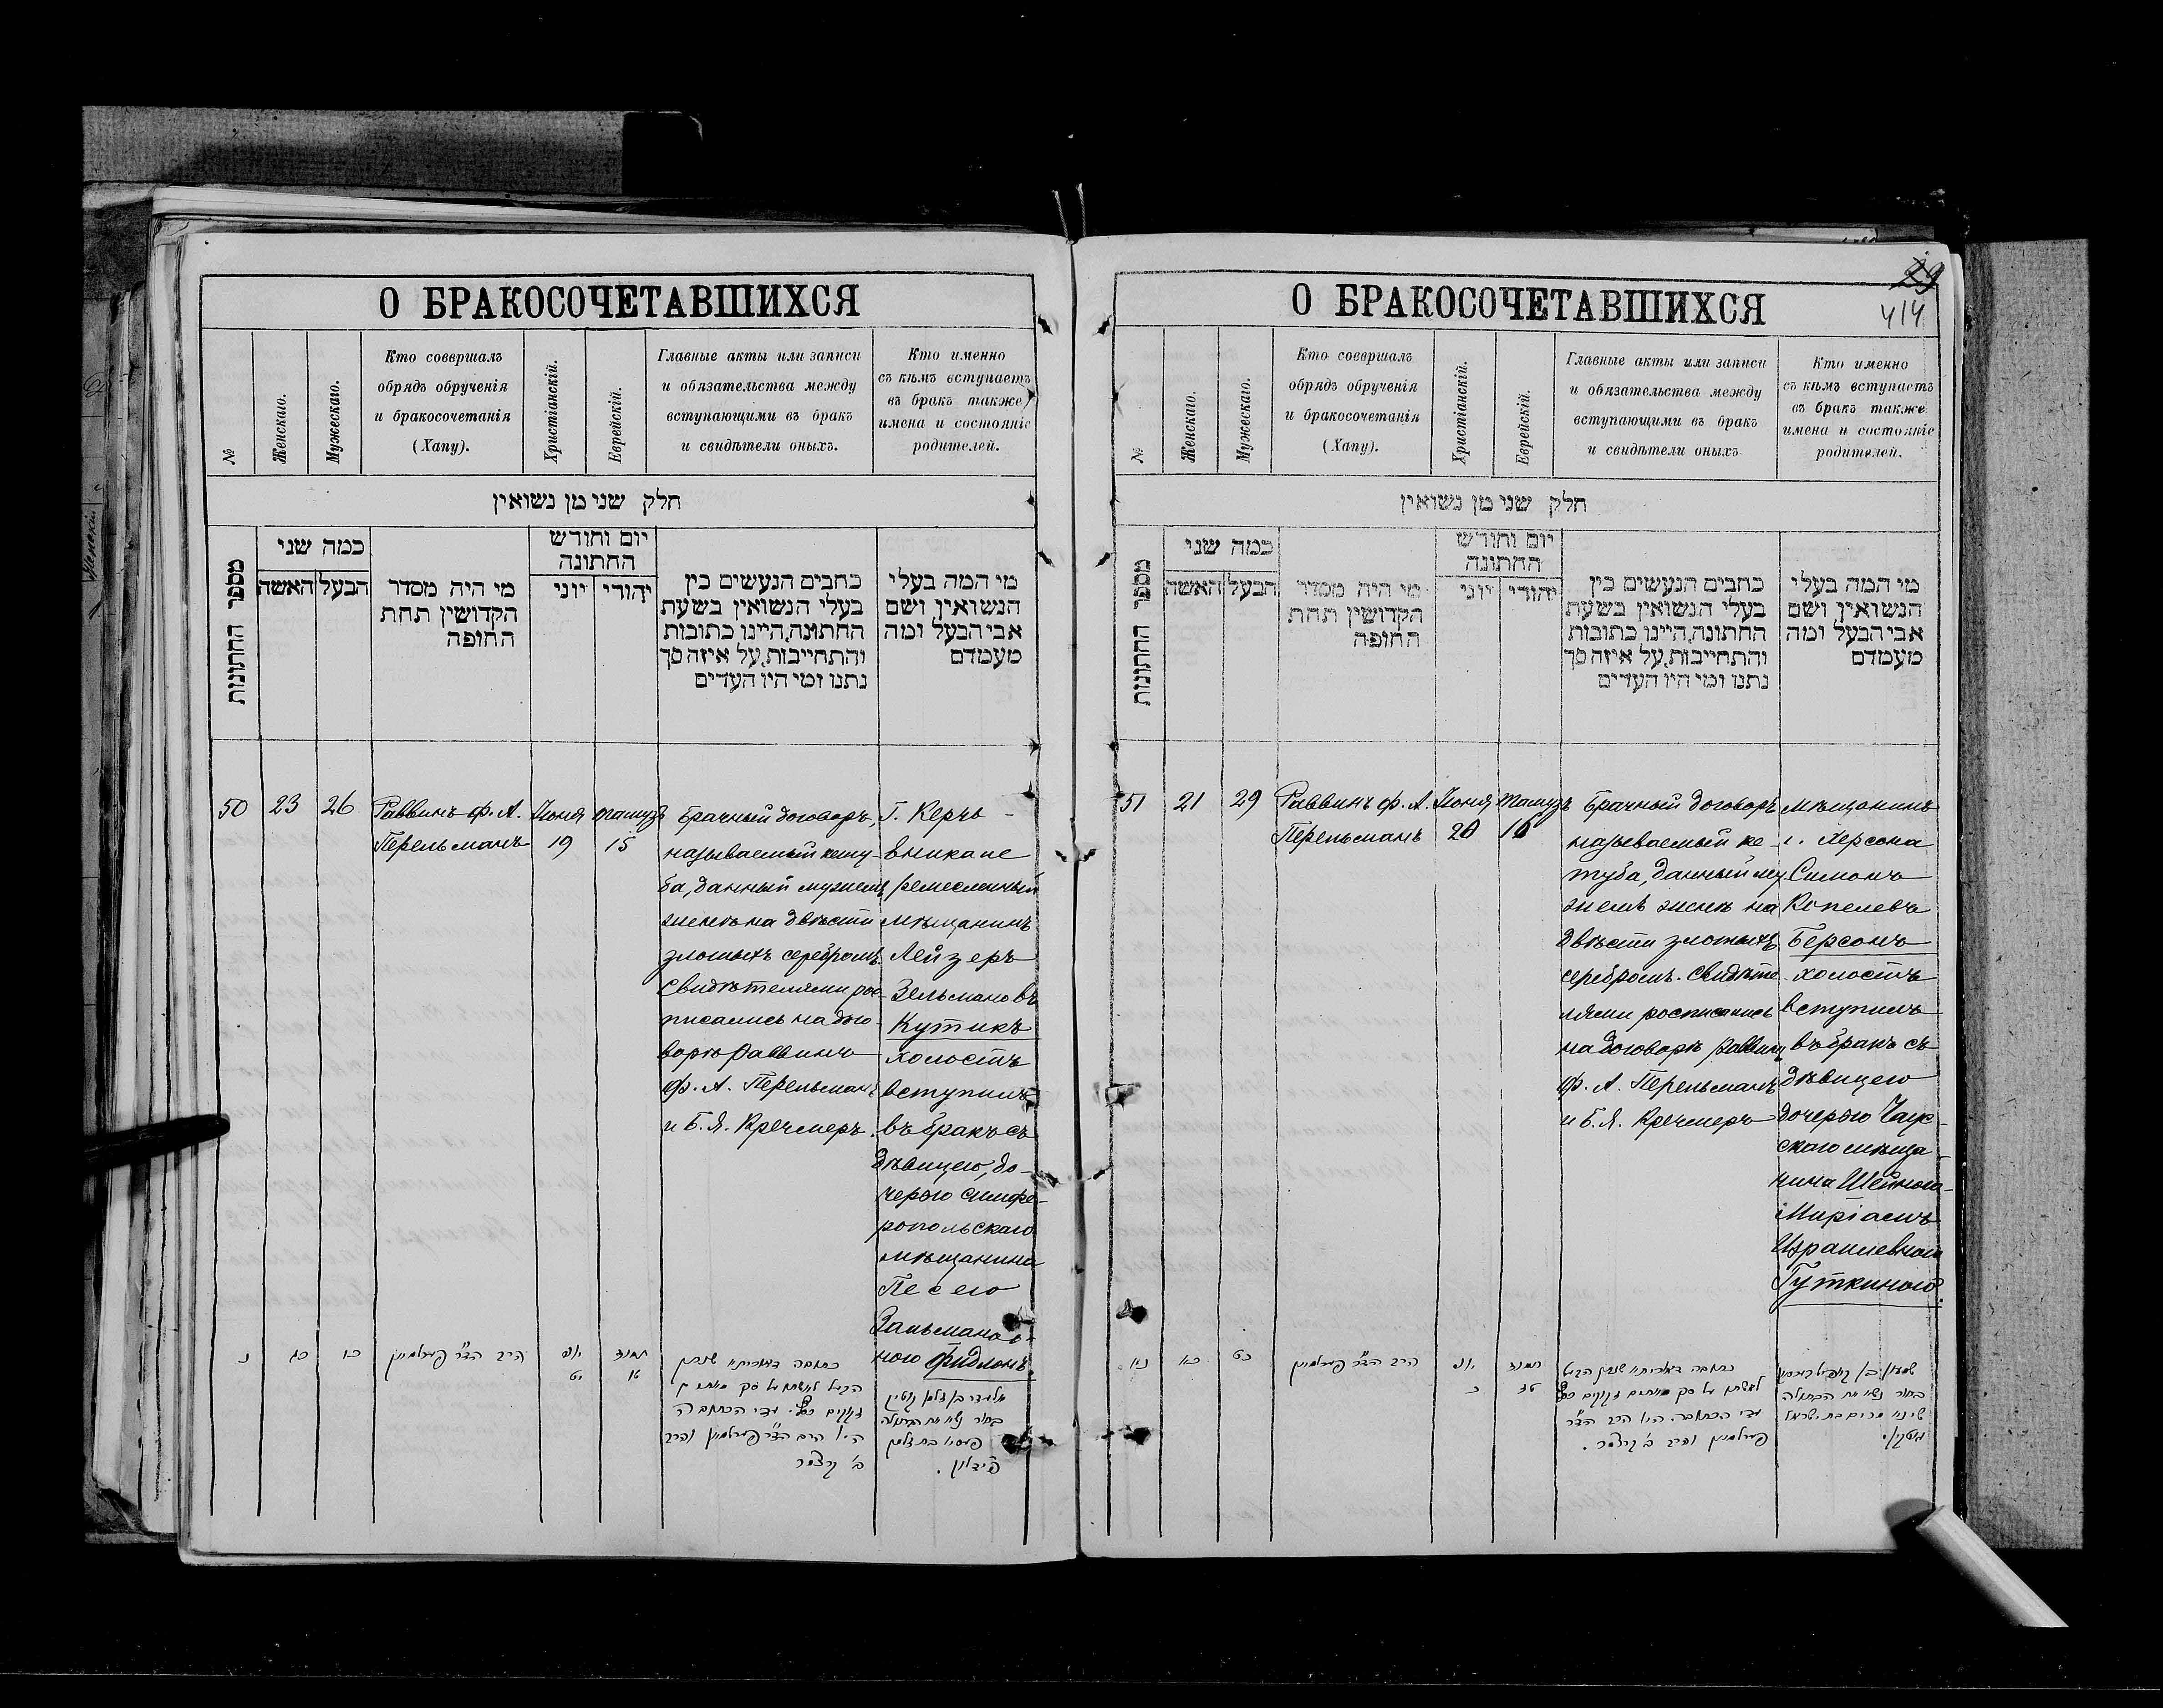 О БРАКОСОЧЕТАВШИХСЯ
№
Женскаго.
Мужескаго.
Кто совершалъ
обрядъ обрученія
и бракосочетанія
(Хапу).
Христіанскій.
Еврейскій.
Главные акты или записи
и обязательства между
вступающими въ бракъ
и свидѣтели оныхъ.
Кто именно
съ кѣмъ вступаетъ
въ бракъ также
имена и состояніе
родителей.
חלק שני מן נשואין
מספר החתונות
כמה שני
האשה
הבעל
מי היה מסדר
הקדושין תחת
החופה
יום וחודש
החתונה
יוני
יהודי
כתבים הנעשים בין
בעלי הנשואין בשעת
החתונה, היינו כתובות
והתחייבות, על איזה סך
נתנו ומי היו העדים
מי המה בעלי
הנשואין ושם
אבי הבעל ומה
מעמדם
50
23
26
Раввинъ Ф. А.
Перельманъ
Іюня
19
Тамузъ
15
Брачный договоръ,
называемый кету-
ба, данный мужемъ
женѣ на двѣсти
злотыхъ серебромъ.
Свидѣтелями рос-
писались на дого-
ворѣ раввинъ
Ф. А. Перельманъ
и Б. Я. Кречмеръ.
Г. Керчь-
Еникале
ремесленный
мѣщанинъ
Лейзеръ
Зельмановъ
Кутикъ
холостъ
вступилъ
въ бракъ съ
дѣвицею, до-
черью симфе-
ропольскаго
мѣщанина
Песею
Зальманов-
ною Фидлонъ.
נ
כג
כו
הרב הד״ר פערלמאן
יוני
יט
תמוז
טו
О БРАКОСОЧЕТАВШИХСЯ
29
414
№
Женскаго.
Мужескаго.
Кто совершалъ
обрядъ обрученія
и бракосочетанія
(Хапу).
Христіанскій.
Еврейскій.
Главные акты или записи
и обязательства между
вступающими въ бракъ
и свидѣтели оныхъ
Кто именно
съ кѣмъ вступаетъ
въ бракъ также
имена и состояніе
родителей.
חלק שני מן נשואין
מספר החתונות
כמה שני
האשה
הבעל
מי היה מסדר
הקדושין תחת
החופה
יום וחודש
החתונה
יוני
יהודי
כתבים הנעשים בין
בעלי הנשואין בשעת
החתונה, היינו כתובות
והתחייבות, על איזה סך
נתנו ומי היו העדים
מי המה בעלי
הנשואין ושם
אבי הבעל ומה
מעמדם
51
21
29
Раввинъ Ф. А.
Перельманъ
Іюня
20
Тамузъ
16
Брачный договоръ
называемый ке-
туба, данный му-
жемъ женѣ на
двѣсти злотыхъ
серебромъ. Свидѣте-
лями росписались
на договорѣ раввинъ
Ф. А. Перельманъ
и Б. Я. Кречмеръ
Мѣщанинъ
г. Херсона
Симонъ
Копелевъ
Берсонъ
холостъ
вступилъ
въ бракъ съ
дѣвицею
дочерью
скаго мѣща-
нина Шейною-
Миріамъ
Израилевною
Гуткиною.
נא
כא
כט
הרב הד״ר פערלמאן
יוני
כ
תמוז
טז